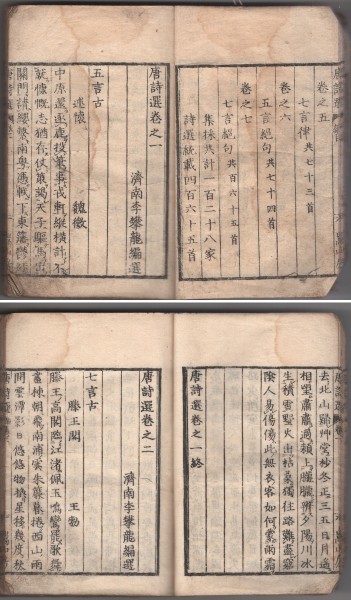 卷之五
七言律 共七十三首
卷之六
五言絕句 共七十四首
卷之七
七言絕句 共百六十五首
集採共計一百二十八家
詩選統載四百六十五首
唐詩選卷之一
濟南李攀龍編選
五言古
述懷 魏徵
中原還逐鹿投筆事戎軒縱橫計不
就慷慨志猶存仗策謁天子驅馬出
關門請纓繫南粵憑軾下東藩鬱紆
去北山歸草堂杪冬正三五日月遙
相望肅肅過潁上朧朧辨夕陽川冰
生積雪野火出枯桑獨往路難盡窮
陰人易傷傷此無衣客如何蒙雨霜
唐詩選卷之一終
唐詩選卷之二
濟南李攀龍編選
七言古
滕王閣 王勃
滕王高閣臨江渚佩玉鳴鸞罷歌舞
畫棟朝飛南浦雲朱簾暮捲西山雨
閒雲潭影日悠悠物換星移幾度秋